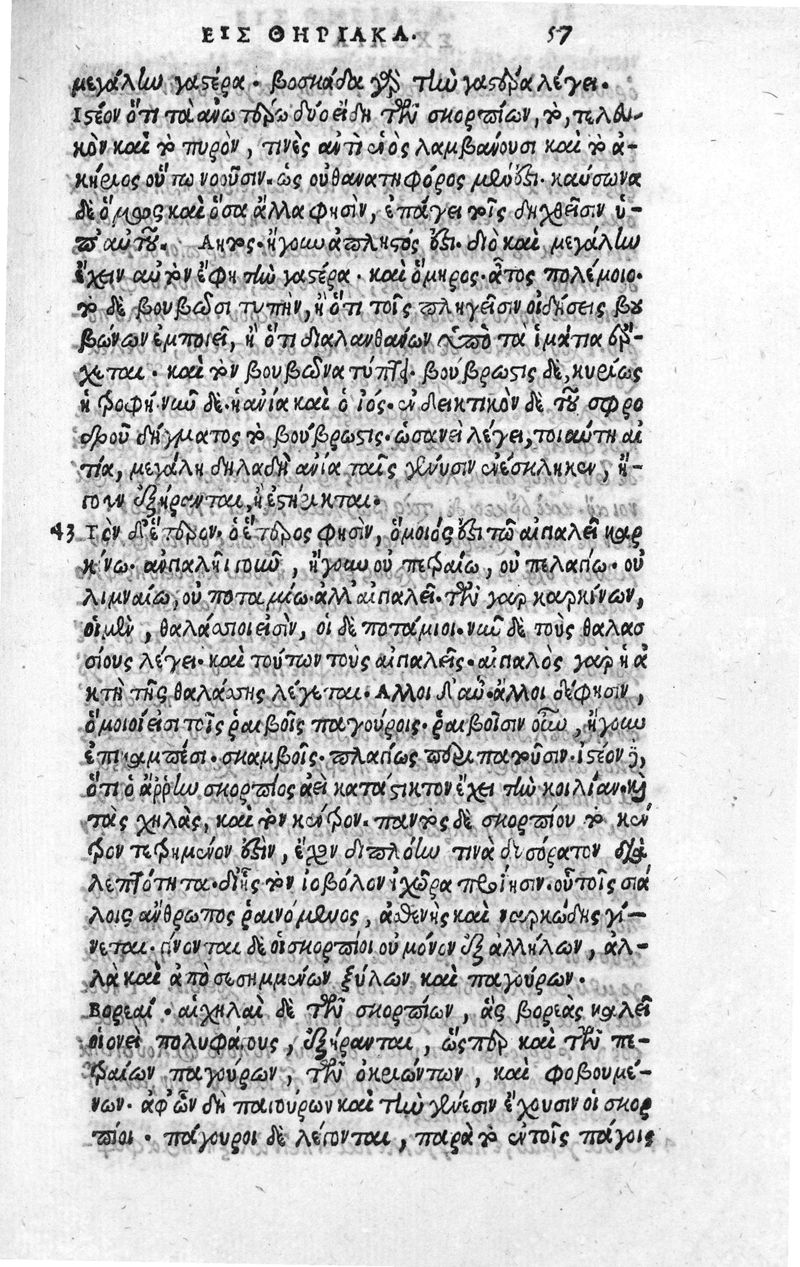 ΕΙΣ ΘΗΡΙΑΚΑ. 57
μεγάλίω γαστέρα· βοσκάδα γδ τίω γαστέρα λέγει·
Ιστέον ὅτι τὰ ἀνωτέρω δύο εἴδη τῶν σκορπίων, τὸ, τε λευ-
κὸν καὶ τὸ πυρὸν, τινὲς ἀντὶ ἑνὸς λαμβάνουσι καὶ τὸ ἀ-
κήριος οὕπω νοοῦσιν· ὡς οὐ θανατηφόρος μέν ἐστι· καύσωνα
δὲ ὅμως καὶ ὅσα ἄλλα φησὶν, ἐπάγει τοῖς δηχθεῖσιν ὑ-
π' αὐτοῦ. Αητος· ἤγουν ἄπληστός ἐστι· διὸ καὶ μεγάλίω
ἔχειν αὐτὸν ἔφη τίω γαστέρα· καὶ ὅμηρος· ἆτος πολέμοιο·
τὸ δὲ βουβῶσι τυπὴν, ἢ ὅτι τοῖς πληγεῖσιν οἰδήσεις βου
βώνων ἐμποιεῖ, ἢ ὅτι διαλανθάνων ὑπὸ τὰ ἱμάτια ἔρ-
χεται· καὶ τὸν βουβῶνα τύπτει· βούβρωστις δὲ, κυρίως
ἡ τροφή· νῦν δὲ· ἡ ἀνία καὶ ὁ ἰός· ἐνδεικτικὸν δὲ τοῦ σφο
δροῦ δήγματος τὸ βούβρωστις· ὡσανεὶ λέγει, τοιαύτη αἰ
τία, μεγάλη δηλαδὴ ἀνία ταῖς γένυσιν ἐνέσκληκεν, ἤ-
γουν ἐξήρανται, ἢ ἐστήρικται·
43 Τὸν δ' ἕτερον· ὁ ἕτερος φησὶν, ὅμοιός ἐστι τῷ αἰγιαλεῖ καρ
κίνῳ· αἰγιαλῆι ἤγουν οὐ πετραίῳ, οὐ πελαγίῳ· οὐ
λιμναίῳ, οὐ ποταμίῳ· ἀλλ' αἰγιαλεῖ· τῶν γαρ καρκίνων,
οἱ μὲν, θαλάσσιοι εἰσὶν, οἱ δὲ ποτάμιοι· νῦν δὲ τοὺς θαλασ
σίους λέγει· καὶ τούτων τοὺς αἰγιαλεῖς· αἰγιαλὸς γαρ ἡ ἀ
κτὴ τῆς θαλάσσης λέγεται· Αλλοι δ' αὖ· ἄλλοι δέ φησιν,
ὅμοιοί εἰσι τοῖς ῥαιβοῖς παγούροις· ῥαιβοῖσιν οὕτω, ἤγουν
ἐπικαμπέσι· σκαμβοῖς· πλαγίως περιπατοῦσιν· ἰστέον δὲ,
ὅτι ὁ ἄρρην σκορπίος ἀεὶ κατάστικτον ἔχει τίω κοιλίαν· καὶ
τὰς χηλὰς, καὶ τὸν κέντρον· παντὸς δὲ σκορπίου τὸ κέν
τρον τετρημένον ἐστὶν, ἔχον διπλόίω τινὰ δυσόρατον διὰ
λεπτότητα· δι' ἧς τὸν ἰοβόλον ἰχῶρα προΐησιν· οὗ τοῖς σιά
λοις ἄνθρωπος ῥαινόμενος, ἀσθενὴς καὶ ναρκώδης γί-
νεται· γίνονται δὲ οἱ σκορπίοι οὐ μόνον ἐξ ἀλλήλων, ἀλ-
λὰ καὶ ἀπὸ σεσημμένων ξύλων καὶ παγούρων·
Βορεαί· αἱ χηλαὶ δὲ τῶν σκορπίων, ἃς βορεὰς καλεῖ
οἱονεὶ πολυφάγους, ἐξήρανται, ὥσπερ καὶ τῶν πε-
τραίων παγούρων, τῶν ὀκριώντων, καὶ φοβουμέ-
νων· ἀφ' ὧν δὴ παγούρων καὶ τίω γένεσιν ἔχουσιν οἱ σκορ
πίοι· πάγουροι δὲ λέγονται, παρὰ τὸ ἐν τοῖς πάγοις